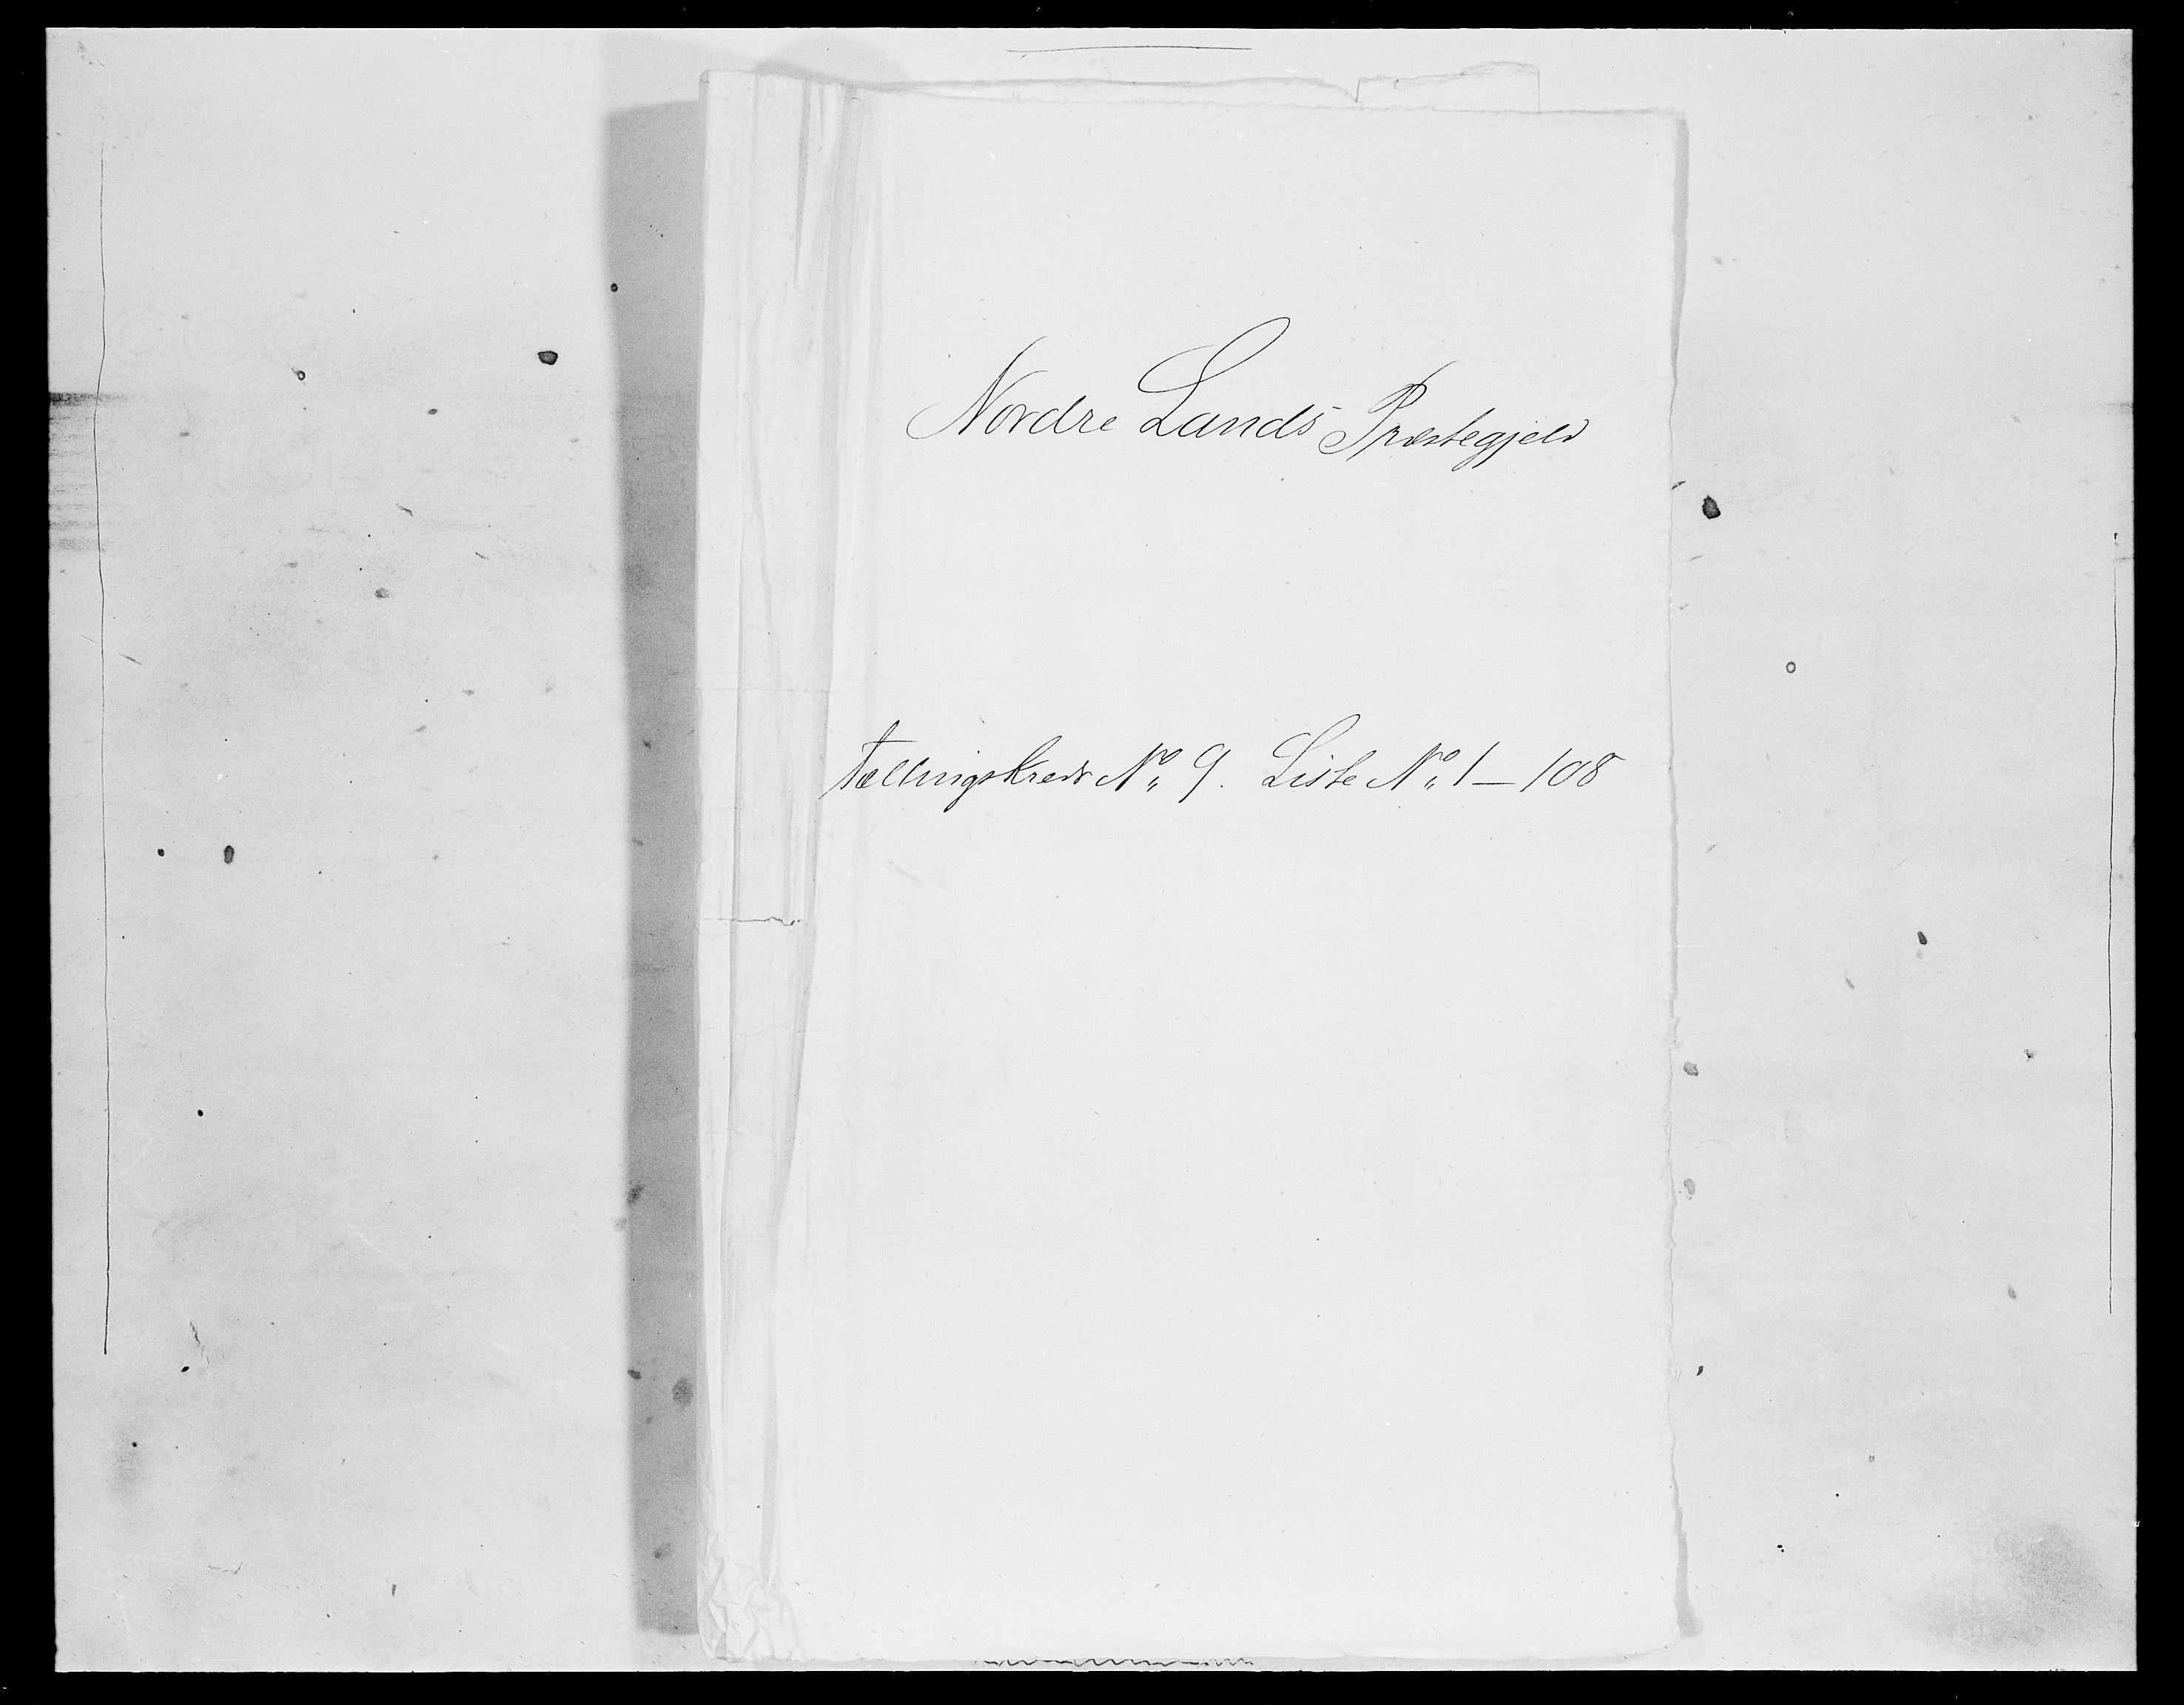 Nordre Lands Præstegjeld
Tællingskreds No 9. Liste No 1 — 108